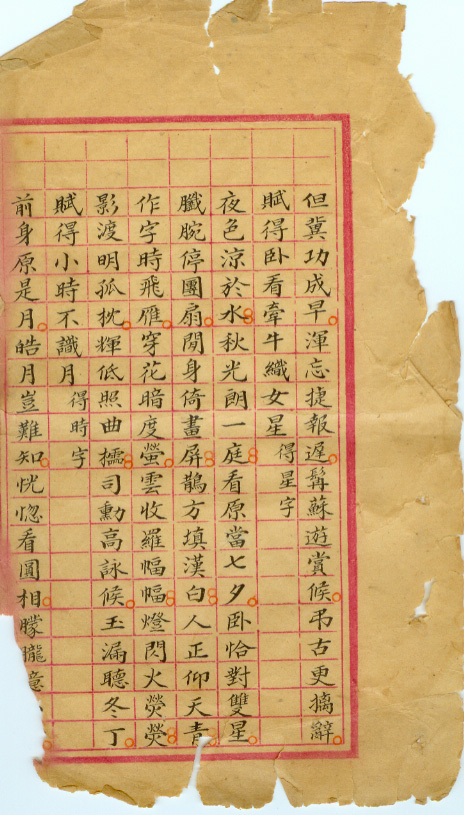 但冀功成早渾忘捷報遲髯蘇遊賞候弔古更摛辭
賦得卧看牽牛織女星得星字
夜色涼於水秋光朗一庭看原當七夕卧恰對雙星
臁腕停團扇閒身倚畫屏鵲方填漢白人正仰天青
作字時飛雁穿花暗度螢雲收羅幅幅燈閃火熒熒
影渡明孤枕輝低照曲櫺司勳高詠候玉漏聽冬丁
賦得小時不識月得時字
前身原是月皓月豈難知恍惚看圓相朦朧